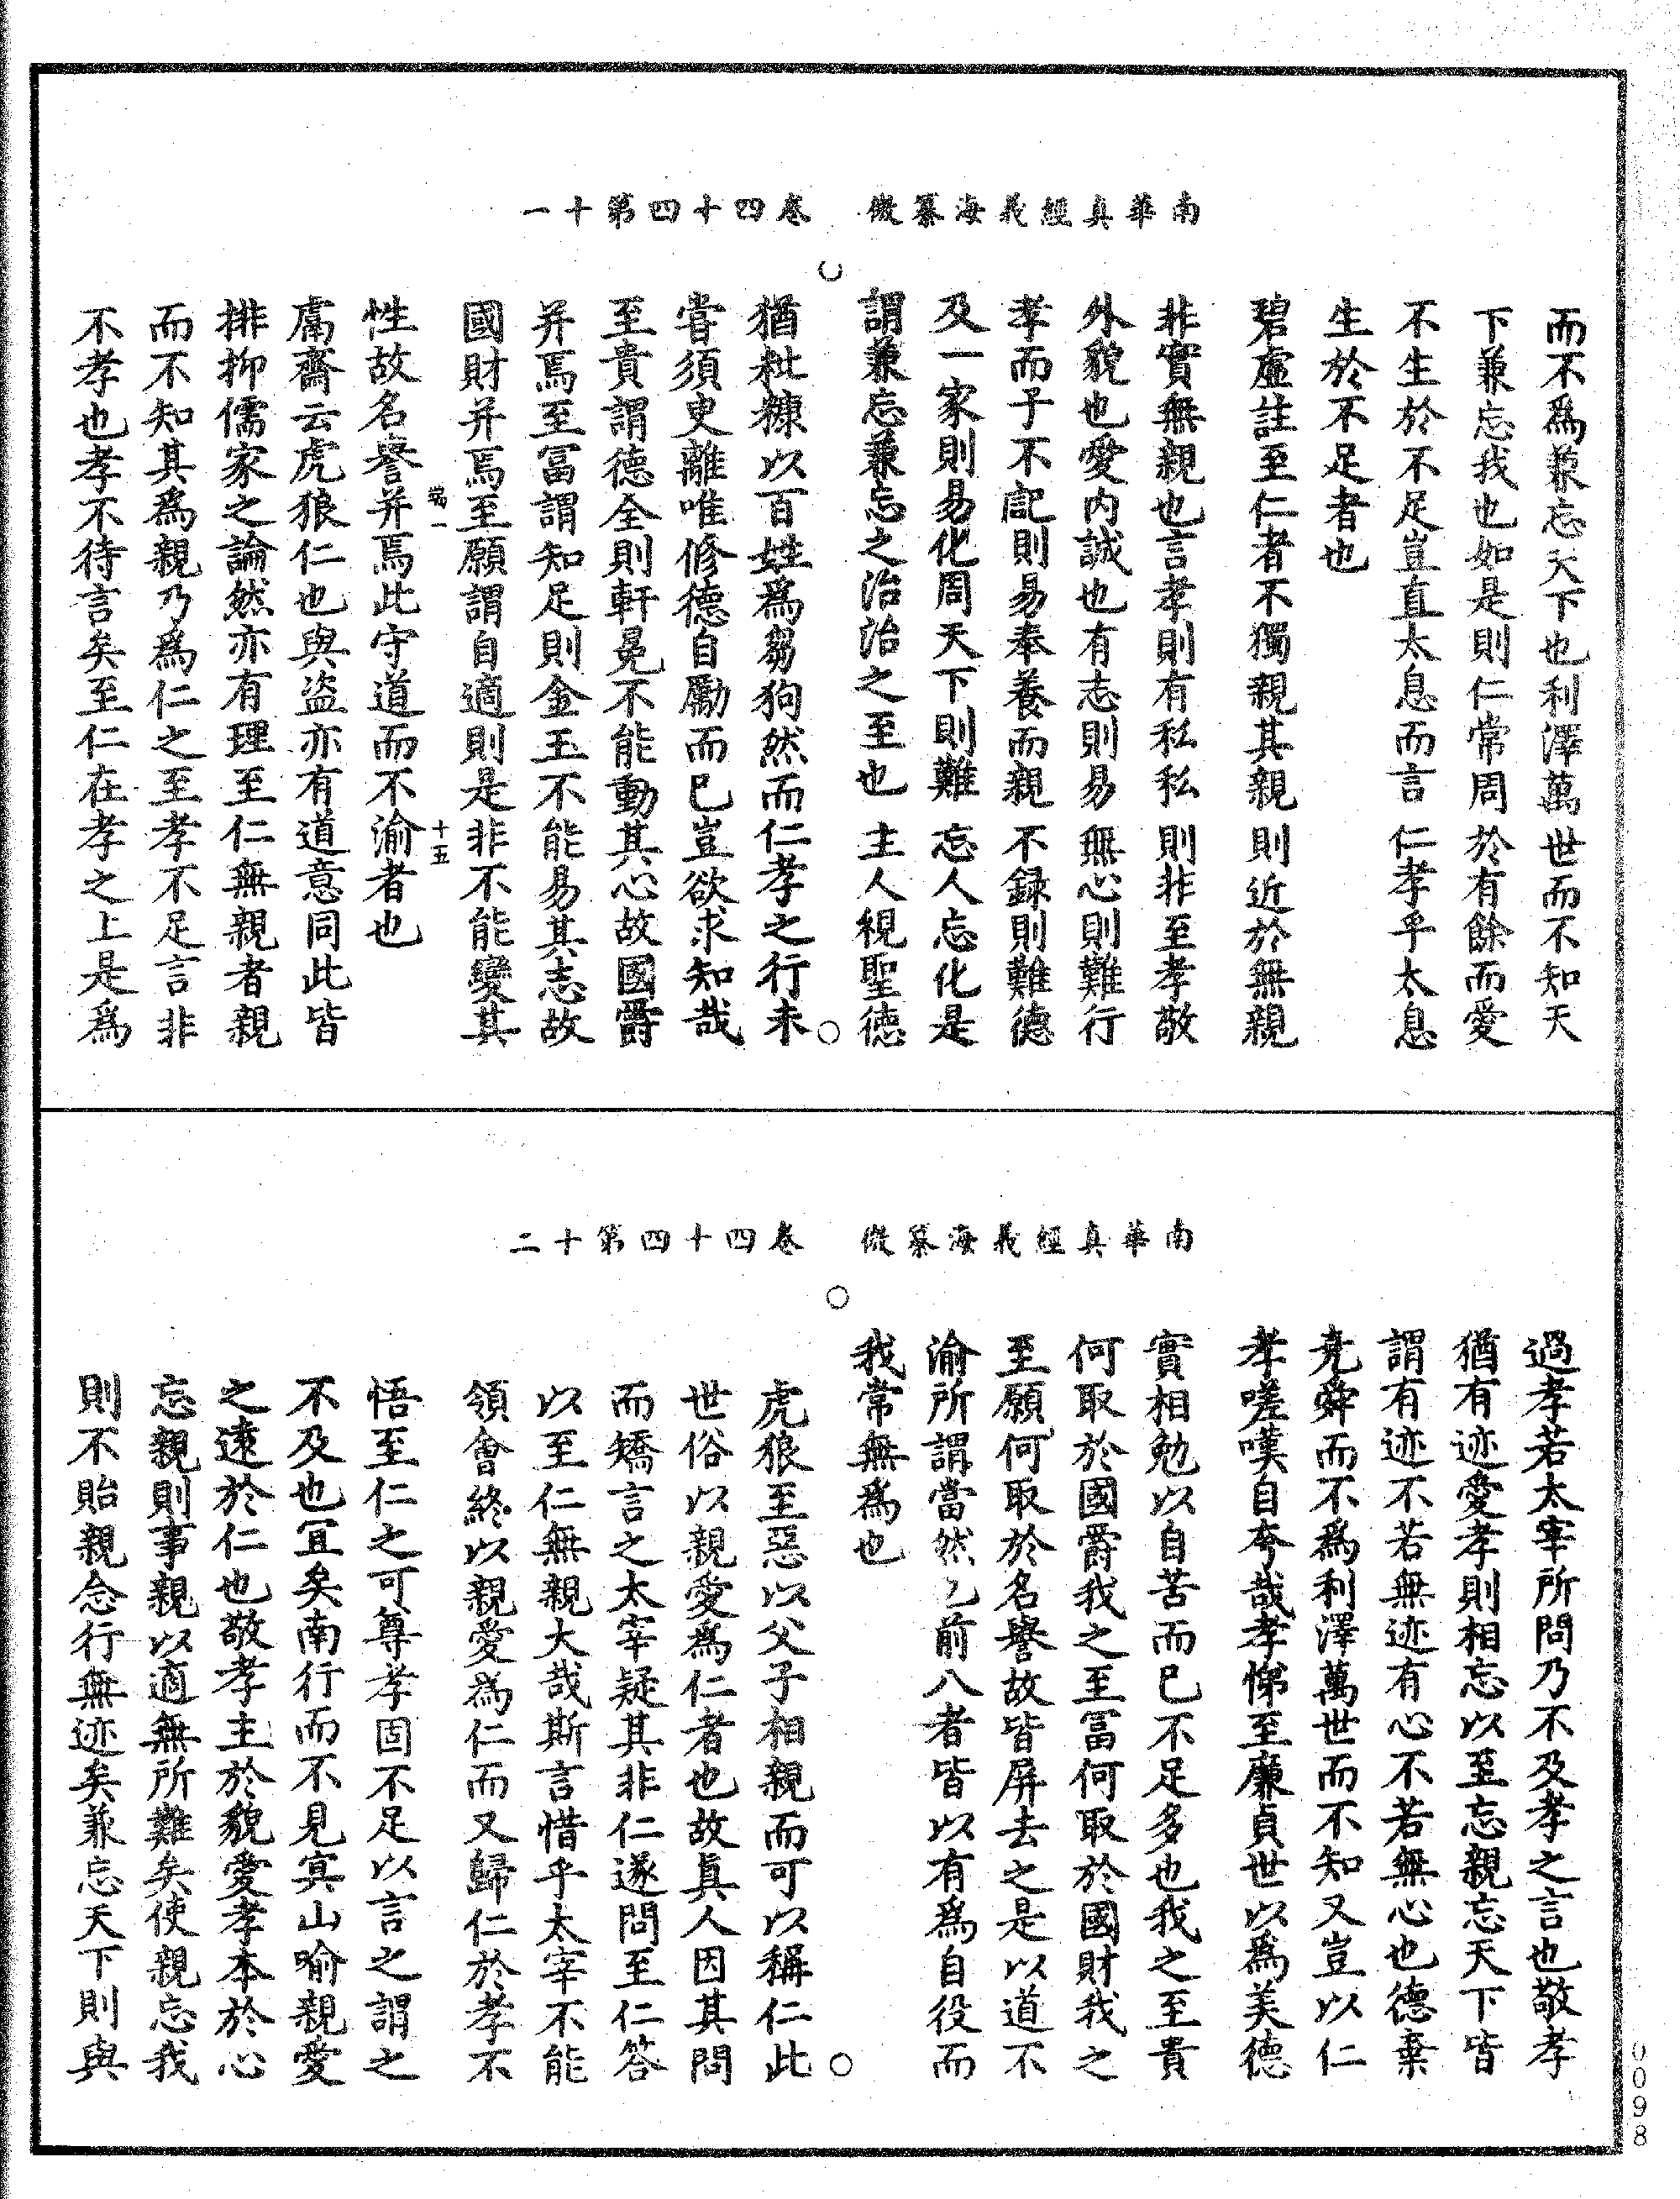 南華真經義海纂微　卷四十四第十一
而不爲兼忘天下也利澤萬世而不知天
下兼忘我也如是則仁常周於有餘而愛
不生於不足豈直太息而言仁孝乎太息
生於不足者也
碧虛註至仁者不獨親其親則近於無親
非實無親也言孝則有私私則非至孝敬
外貌也愛內誠也有志則易無心則難行
孝而子不記則易奉養而親不録則難德
及一家則易化周天下則難忘人忘化是
謂兼忘兼忘之治治之至也主人視聖德
猶粃糠以百姓爲芻狗然而仁孝之行未
嘗須臾離唯修德自勵而已豈欲求知哉
至貴謂德全則軒冕不能動其心故國爵
并焉至冨謂知足則金玉不能易其志故
國財并焉至願謂自適則是非不能變其
性故名譽并焉此守道而不渝者也
端一
十五
鬳齋云虎狼仁也與盜亦有道意同此皆
排抑儒家之論然亦有理至仁無親者親
而不知其爲親乃爲仁之至孝不足言非
不孝也孝不待言矣至仁在孝之上是爲
南華真經義海纂微　卷四十四第十二
過孝若太宰所問乃不及孝之言也敬孝
猶有迹愛孝則相忘以至忘親忘天下皆
謂有迹不若無迹有心不若無心也德棄
堯舜而不爲利澤萬世而不知又豈以仁
孝嗟嘆自夸哉孝悌至廉貞世以爲美德
實相勉以自苦而已不足多也我之至貴
何取於國爵我之至冨何取於國財我之
至願何取於名譽故皆屏去之是以道不
渝所謂當然也前八者皆以有爲自役而
我常無爲也
虎狼至惡以父子相親而可以稱仁此
世俗以親愛爲仁者也故真人因其問
而矯言之太宰疑其非仁遂問至仁答
以至仁無親大哉斯言惜乎太宰不能
領會終以親愛爲仁而又歸仁於孝不
悟至仁之可尊孝固不足以言之謂之
不及也冝矣南行而不見冥山喻親愛
之遠於仁也敬孝主於貌愛孝本於心
忘親則事親以適無所難矣使親忘我
則不貽親念行無迹矣兼忘天下則與
0098